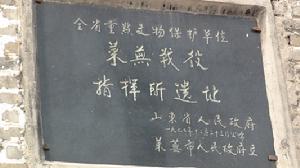 全省重点文物保护单位
莱芜战役
指挥所遗址
山东省人民政府
一九七七年十二月二十三日公布
莱芜市人民政府立